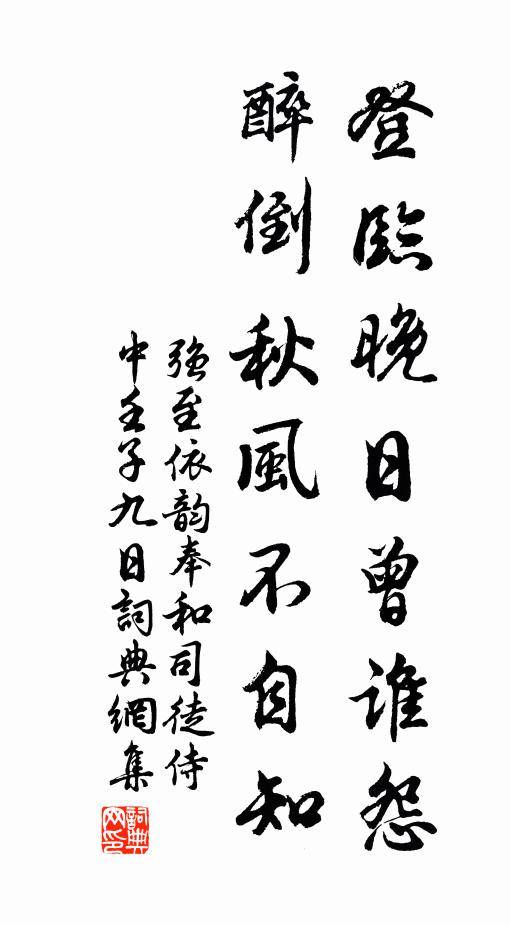 登臨晚日曾谁怨
醉倒秋風不自知
強至依韵奉和司徒侍
中壬子九日詞典網集
詞典网印